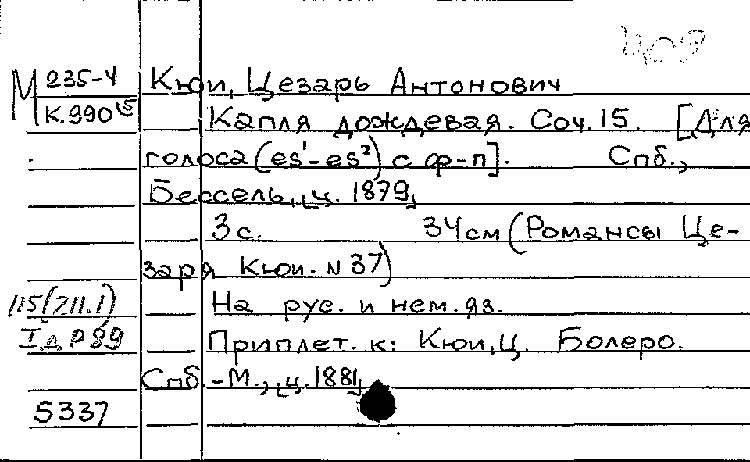 М 235-4
К.990
Кюи, Цезарь Антонович
Капля дождевая. Соч. 15. [Для
голоса (es¹-es²) с ф-п]. Спб.,
Бессель, [ц. 1879]
3 с. 34 см (Романсы Це-
заря Кюи. N 37)
На рус. и нем. яз.
Приплет. к: Кюи, Ц. Болеро.
Спб.-М., [ц. 1881]
5337